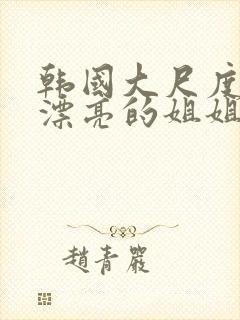 韩国大尺度
漂亮的姐姐
趙青嚴